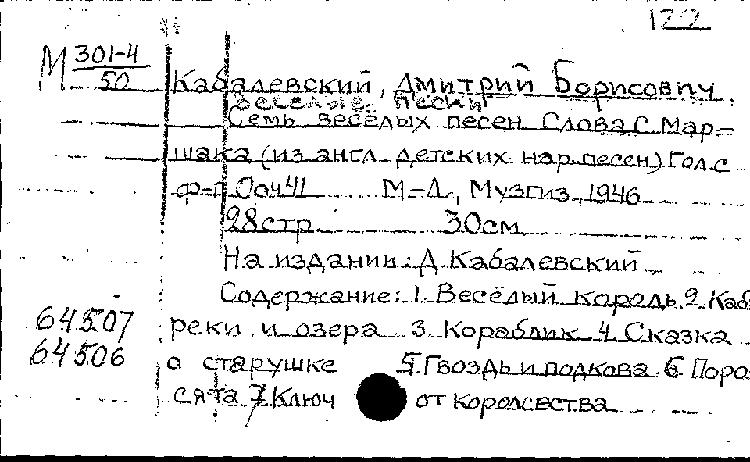 122
М 301-4
50
Кабалевский, Дмитрий Борисович.
Веселые песни
Семь весёлых песен Слова С. Мар-
шака (из англ. детских нар. песен) Гол. с
ф-п Ооч 41 М-Л, Музгиз, 1946
28 стр 30 см
На издании: Д. Кабалевский
Содержание: 1. Весёлый король. 2. Каб
64507 реки и озера 3. Кораблик 4. Сказка
64506 о старушке 5. Гвоздь и подкова 6. Поро
сята 7. Ключ от королевства